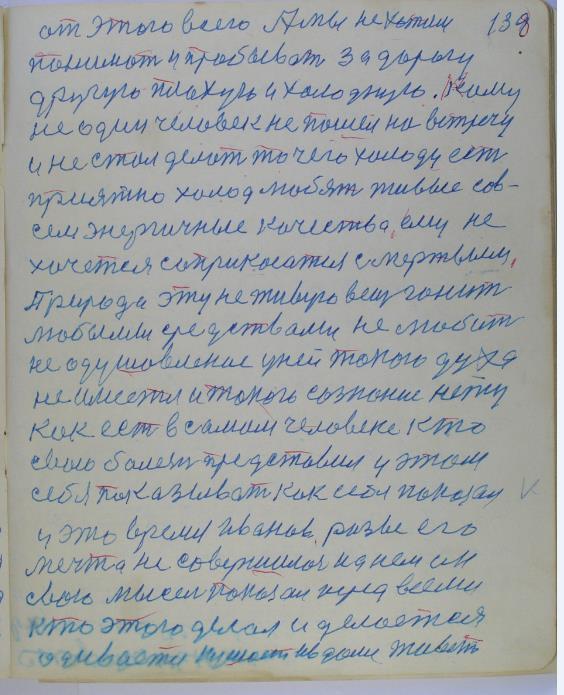 от этого всего А мы не хотим 139
понимат и пробыват За дорогу
другую плахую и холодную. Кому
не один человек не пошел на встречу
и не стал делат то чего холоду ест
приятно холод любят живые сов-
сем энергичные качества, ему не
хочется соприкосатися с мертвым,
Природа эту не живую вещ гонит
любыми средствами не любит
не одушовление у ней токого духа
не имеется и токого сознание нету
как ест в самом человеке кто
свою болезн представил и этом
себя показыват как себя показал
и это время Иванов, разве его
мечта не совершилас на нем он
свою мысел показал перед всеми
кто этого делал и делается
одивается кушает в доме живет